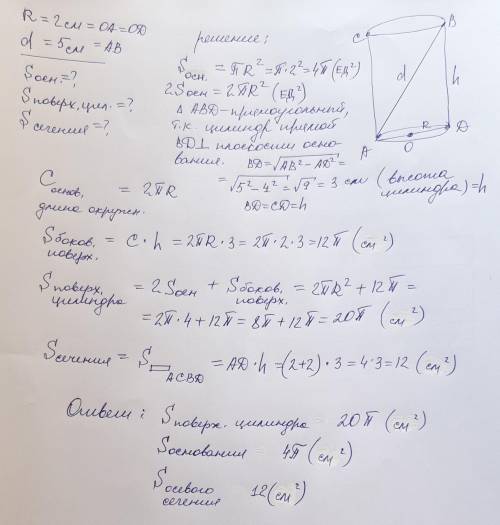 R = 2см = OA = OD
d = 5см = AB
Sосн. = ?
Sповерх. цил. = ?
Sсечения = ?
решение:
Sосн. = πR² = π·2² = 4π (ед²)
2Sосн = 2πR² (ед²)
△ ABD – прямоугольный,
т.к. цилиндр прямой
BD⊥ плоскости осно-
вания. BD = √AB² – AD² =
= √5² – 4² = √9 = 3 см (высота цилиндра) = h
BD = CD = h
C B d h R A O D
Cоснов. длина окружн. = 2πR
Sбоков. поверх. = C · h = 2πR · 3 = 2π · 2 · 3 = 12π (см²)
Sповерх. цилиндра = 2Sосн + Sбоков. поверх. = 2πR² + 12π =
= 2π · 4 + 12π = 8π + 12π = 20π (см²)
Sсечения = S▭ACBD = AD · h = (2+2) · 3 = 4·3 = 12 (см²)
Ответ: Sповерх. цилиндра 20π (см²)
Sоснования = 4π (см²)
Sосевого сечения 12 (см²)